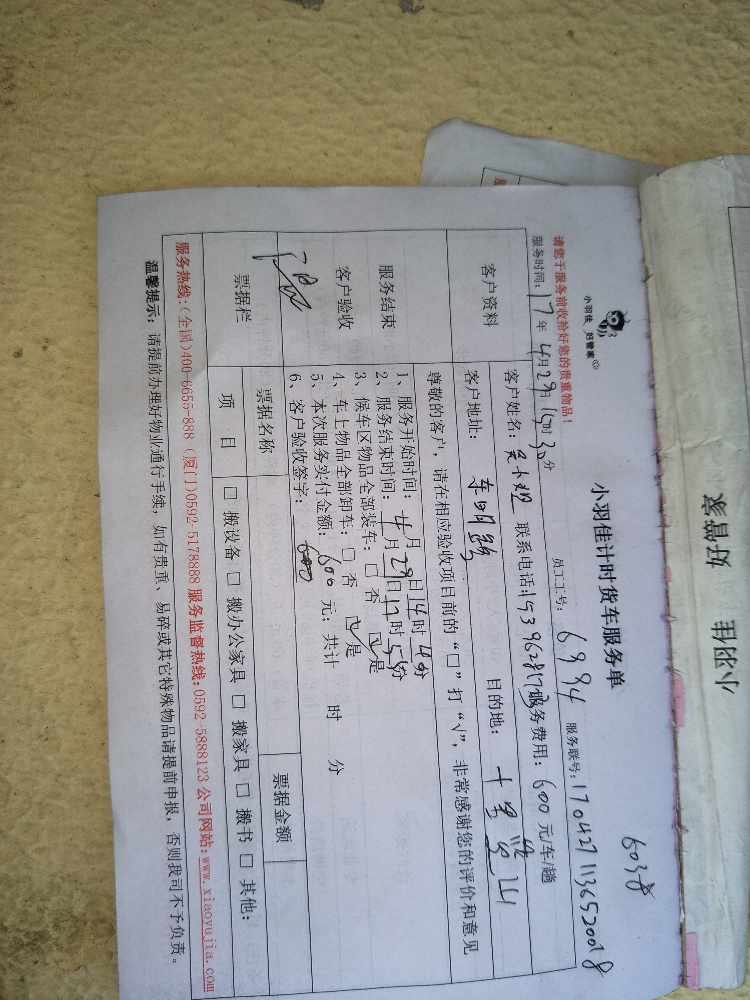 小羽佳 好管家
小羽佳 好管家
小羽佳计时货车服务单
请您于服务前收拾好您的贵重物品！
员工工号：6994 服务联号：
服务时间：17年4月29日15时30分
客户资料
客户姓名： 联系电话： 服务费用：600元/车/趟
客户地址： 目的地：
服务结束
客户验收
尊敬的客户，请在相应验收项目前的“□”打“√”，非常感谢您的评价和意见
1、服务开始时间：4月29日14时4分
2、服务结束时间：4月29日17时 分
3、候车区物品全部装车：□ 否 ☑ 是
4、车上物品全部卸车：□ 否 ☑ 是
5、本次服务实付金额：600元；共计 时 分
6、客户验收签字：
票据栏
票据名称 票据金额
项 目 □ 搬设备 □ 搬办公家具 □ 搬家具 □ 搬书 □ 其他：
服务热线：(全国)400-6655-888 (厦门)0592-5178888 服务监督热线：0592-5888123 公司网站：www.xiaoyujia.com
温馨提示：请提前办理好物业通行手续，如有贵重、易碎或其它特殊物品请提前申报，否则我司不予负责。